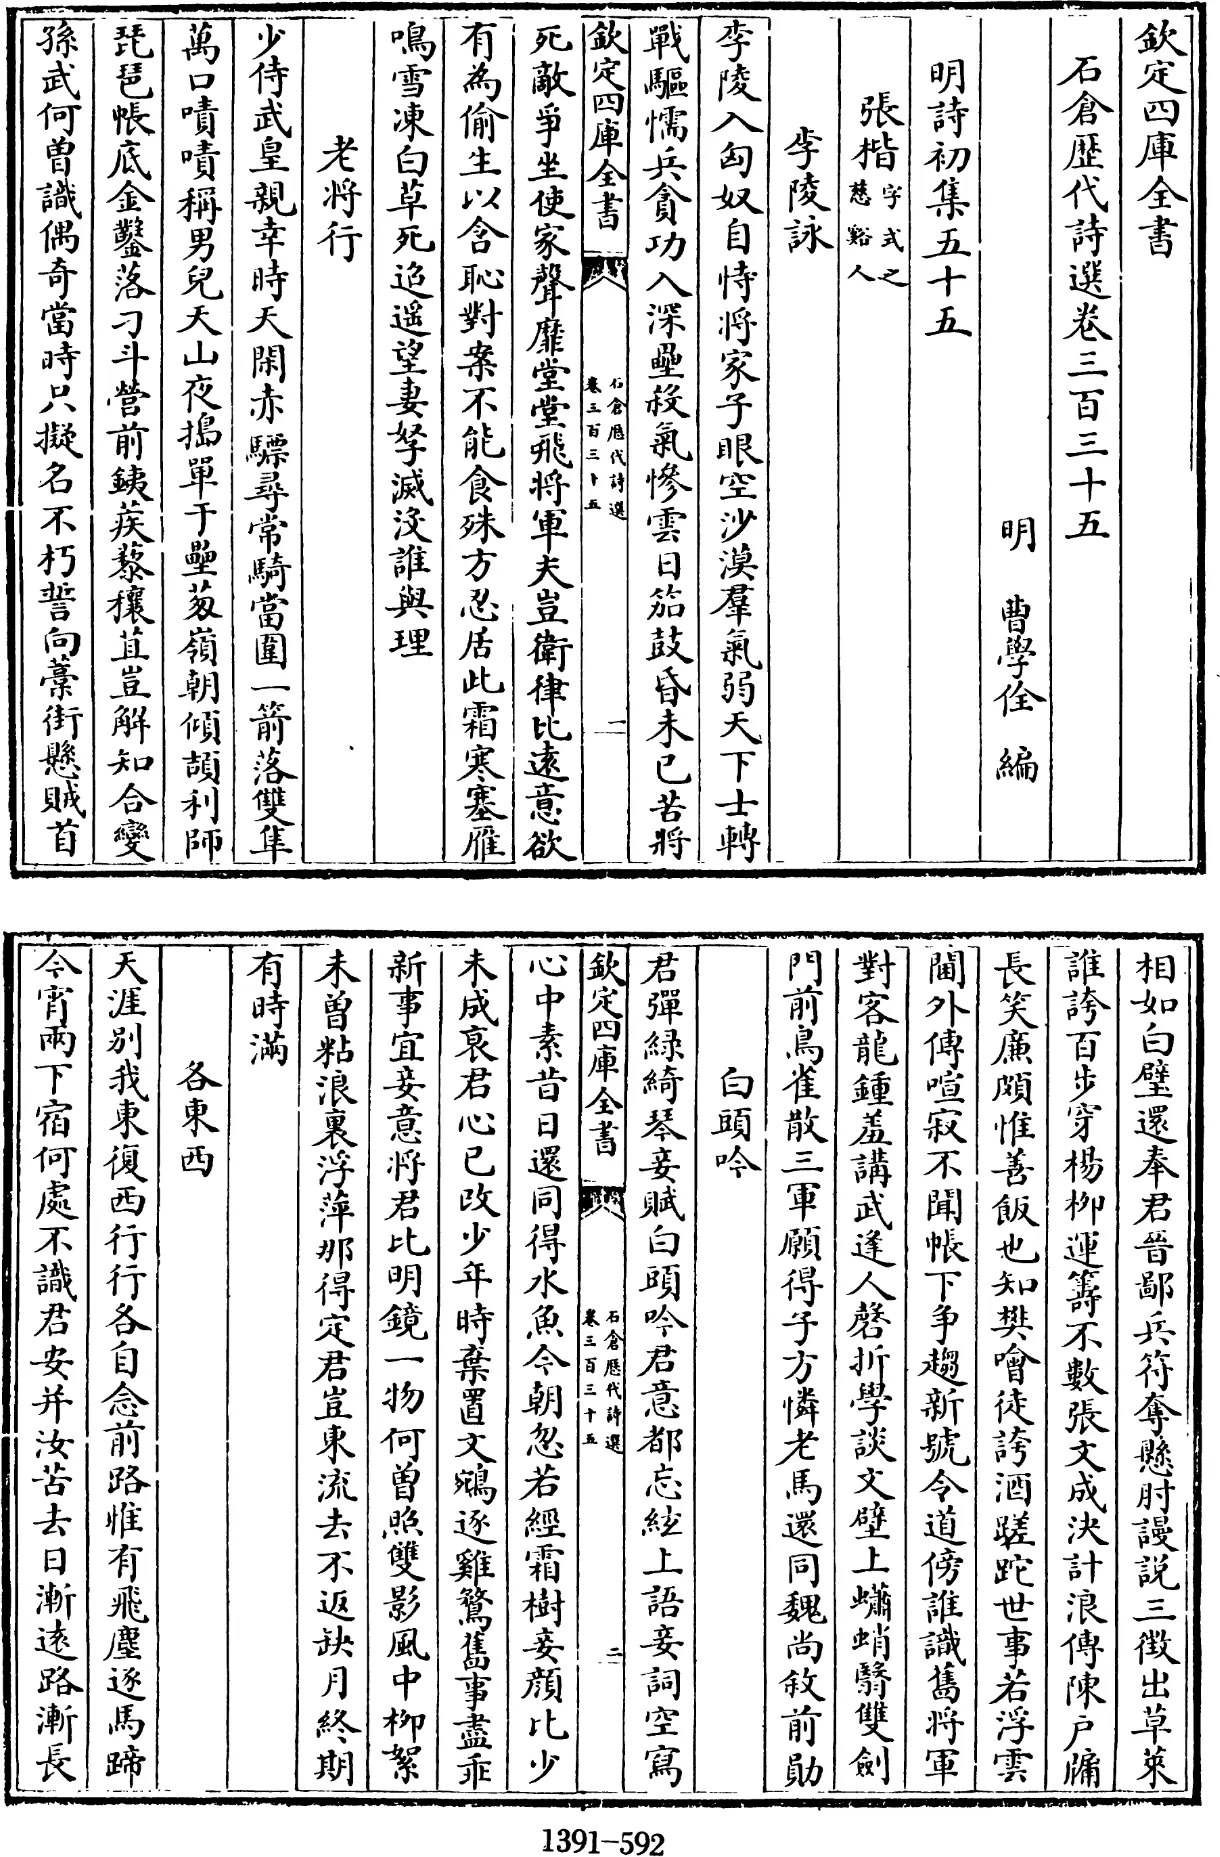 欽定四庫全書
石倉歷代詩選卷三百三十五
明　曹學佺　編
明詩初集五十五
張楷字式之慈谿人
李陵詠
李陵入匈奴自恃將家子眼空沙漠羣氣弱天下士轉
戰驅懦兵貪功入深壘殺氣慘雲日笳鼓昏未已苦將
欽定四庫全書
石倉歷代詩選
卷三百三十五
一
死敵爭坐使家聲靡堂堂飛將軍夫豈衛律比遠意欲
有為偷生以含恥對案不能食殊方忍居此霜寒塞雁
鳴雪凍白草死迢遥望妻孥滅沒誰與理
老將行
少侍武皇親幸時天閑赤驃尋常騎當圍一箭落雙隼
萬口嘖嘖稱男兒天山夜搗單于壘葱嶺朝傾頡利師
琵琶帳底金鑿落刁斗營前銕蒺藜穰苴豈解知合變
孫武何曾識偶奇當時只擬名不朽誓向藁街懸賊首
相如白璧還奉君晉鄙兵符奪懸肘謾説三徵出草萊
誰誇百步穿楊柳運籌不數張文成決計浪傳陳户牖
長笑廉頗惟善飯也知樊噲徒誇酒蹉跎世事若浮雲
閫外傳喧寂不聞帳下争趨新號令道傍誰識舊將軍
對客龍鍾羞講武逢人磬折學談文壁上蠨蛸翳雙劍
門前鳥雀散三軍願得子方憐老馬還同魏尚敘前勛
白頭吟
君彈綠綺琴妾賦白頭吟君意都忘絃上語妾詞空寫
欽定四庫全書
石倉歷代詩選
卷三百三十五
二
心中素昔日還同得水魚今朝忽若經霜樹妾顔比少
未成衰君心已改少年時棄置文鵷逐雞鶩舊事盡乖
新事宜妾意將君比明鏡一物何曾照雙影風中柳絮
未曽粘浪裏浮萍那得定君豈東流去不返缺月終期
有時滿
各東西
天涯别我東復西行行各自念前路惟有飛塵逐馬蹄
今宵兩下宿何處不識君安并汝苦去日漸遠路漸長
1391-592